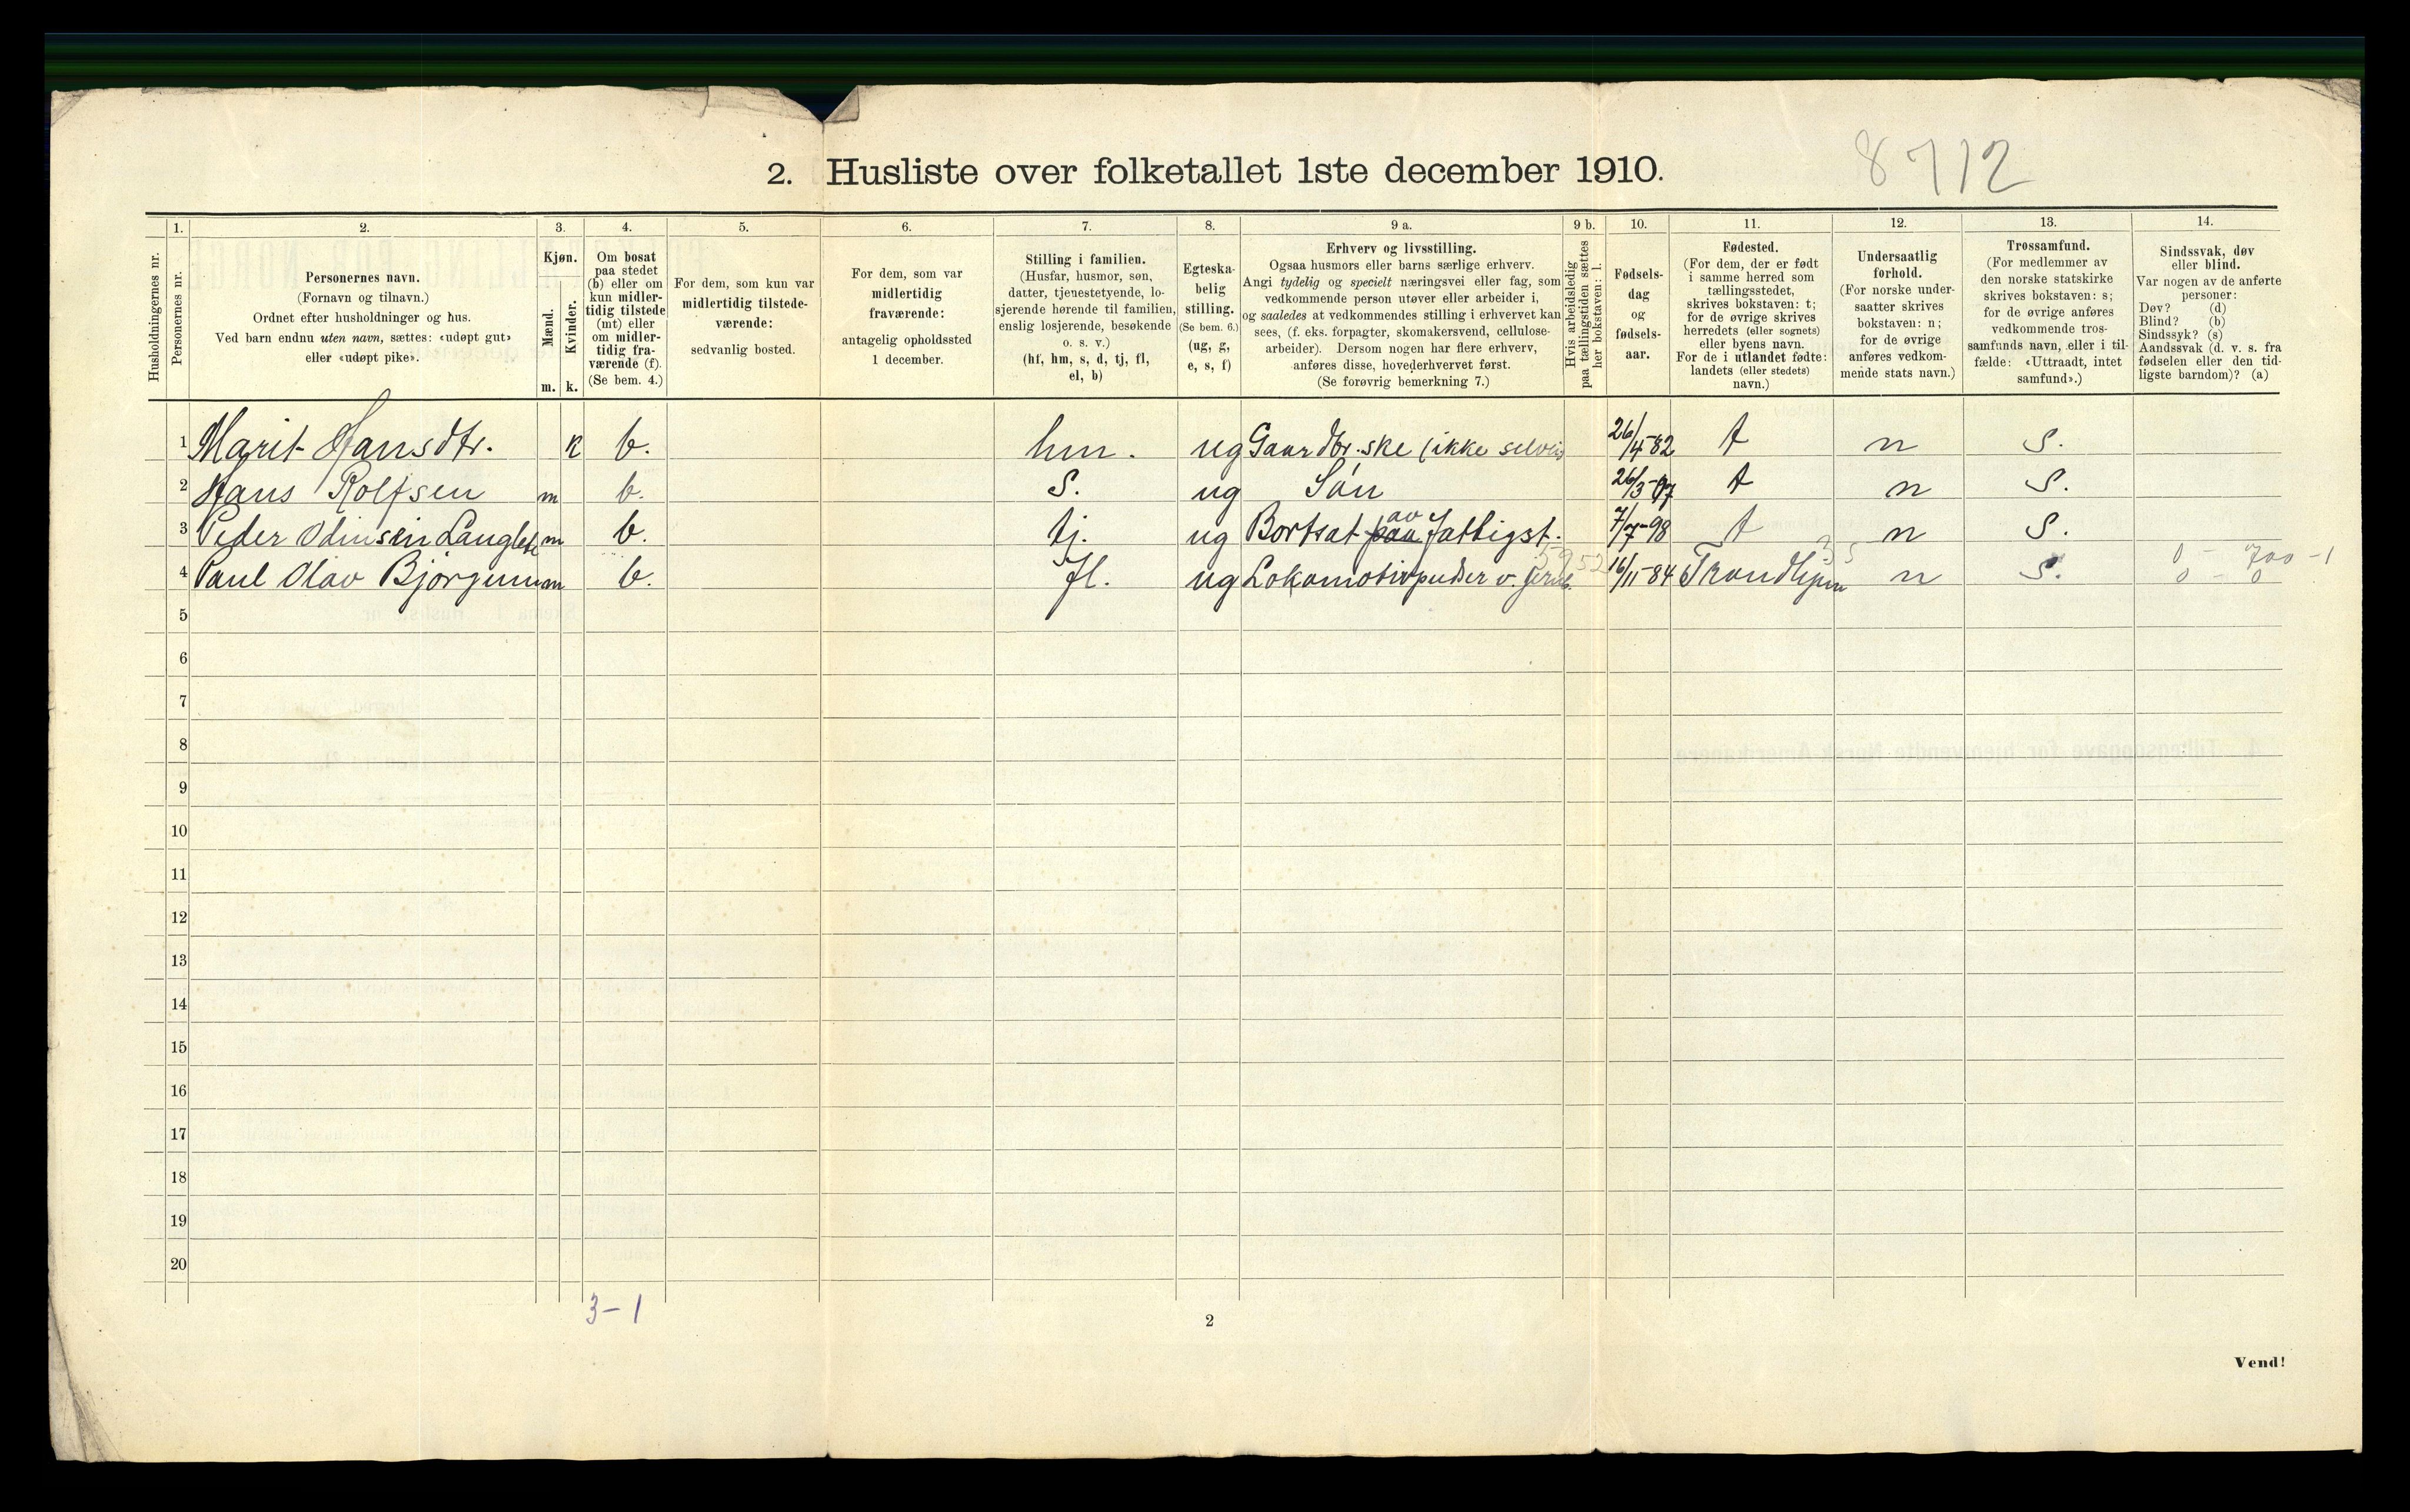 8712
2. Husliste over folketallet 1ste december 1910.
1. 2. 3. 4. 5. 6. 7. 8. 9 a. 9 b. 10. 11. 12. 13. 14.
Husholdningernes nr.
Personernes nr.
Personernes navn.
(Fornavn og tilnavn.)
Ordnet efter husholdninger og hus.
Ved barn endnu uten navn, sættes: «udøpt gut»
eller «udøpt pike».
Kjøn.
Mænd.
Kvinder.
m. k.
Om bosat
paa stedet
(b) eller om
kun midler-
tidig tilstede
(mt) eller
om midler-
tidig fra-
værende (f).
(Se bem. 4.)
For dem, som kun var
midlertidig tilstede-
værende:
sedvanlig bosted.
For dem, som var
midlertidig
fraværende:
antagelig opholdssted
1 december.
Stilling i familien.
(Husfar, husmor, søn,
datter, tjenestetyende, lo-
sjerende hørende til familien,
enslig losjerende, besøkende
o. s. v.)
(hf, hm, s, d, tj, fl,
el, b)
Egteska-
belig
stilling.
(Se bem. 6.)
(ug, g,
e, s, f)
Erhverv og livsstilling.
Ogsaa husmors eller barns særlige erhverv.
Angi tydelig og specielt næringsvei eller fag, som
vedkommende person utøver eller arbeider i,
og saaledes at vedkommendes stilling i erhvervet kan
sees, (f. eks. forpagter, skomakersvend, cellulose-
arbeider). Dersom nogen har flere erhverv,
anføres disse, hovederhvervet først.
(Se forøvrig bemerkning 7.)
Hvis arbeidsledig
paa tællingstiden sættes
her bokstaven: l.
Fødsels-
dag
og
fødsels-
aar.
Fødested.
(For dem, der er født
i samme herred som
tællingsstedet,
skrives bokstaven: t;
for de øvrige skrives
herredets (eller sognets)
eller byens navn.
For de i utlandet fødte:
landets (eller stedets)
navn.)
Undersaatlig
forhold.
(For norske under-
saatter skrives
bokstaven: n;
for de øvrige
anføres vedkom-
mende stats navn.)
Trossamfund.
(For medlemmer av
den norske statskirke
skrives bokstaven: s;
for de øvrige anføres
vedkommende tros-
samfunds navn, eller i til-
fælde: «Uttraadt, intet
samfund».)
Sindssvak, døv
eller blind.
Var nogen av de anførte
personer:
Døv? (d)
Blind? (b)
Sindssyk? (s)
Aandssvak (d. v. s. fra
fødselen eller den tid-
ligste barndom)? (a)
1 Marit Hansdtr. k b. hm. ug Gaardbr.ske (ikke 26/4-82 t n s.
2 Hans Rolfsen m b. s. ug Søn 26/3-07 t n s.
3 Peder Odinsen m b. tj. ug Bortsat paa av fattigst. 7/7-98 t n s.
4 Paul Olav Bjørgum m b. fl. ug Lokomotivpudser v. jernb. 16/11-84 Trondhjem n s. 0 - 700 - 1
0 - 0
5
6
7
8
9
10
11
12
13
14
15
16
17
18
19
20
3-1
2
Vend!